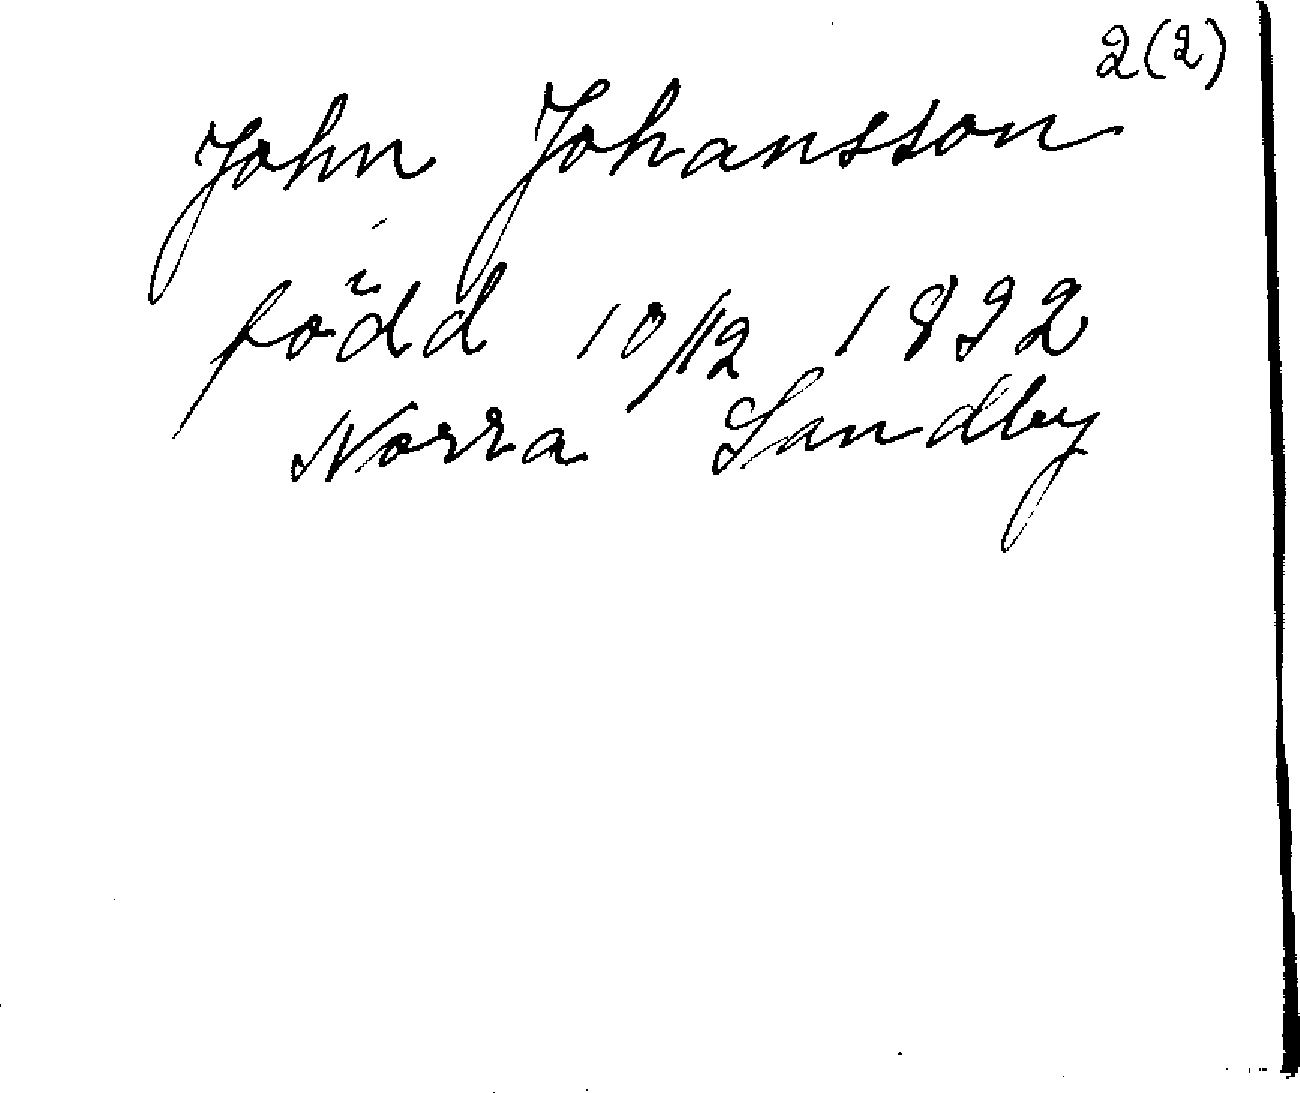 2(2)
John Johansson
född 10/12 1892
Norra Sandby